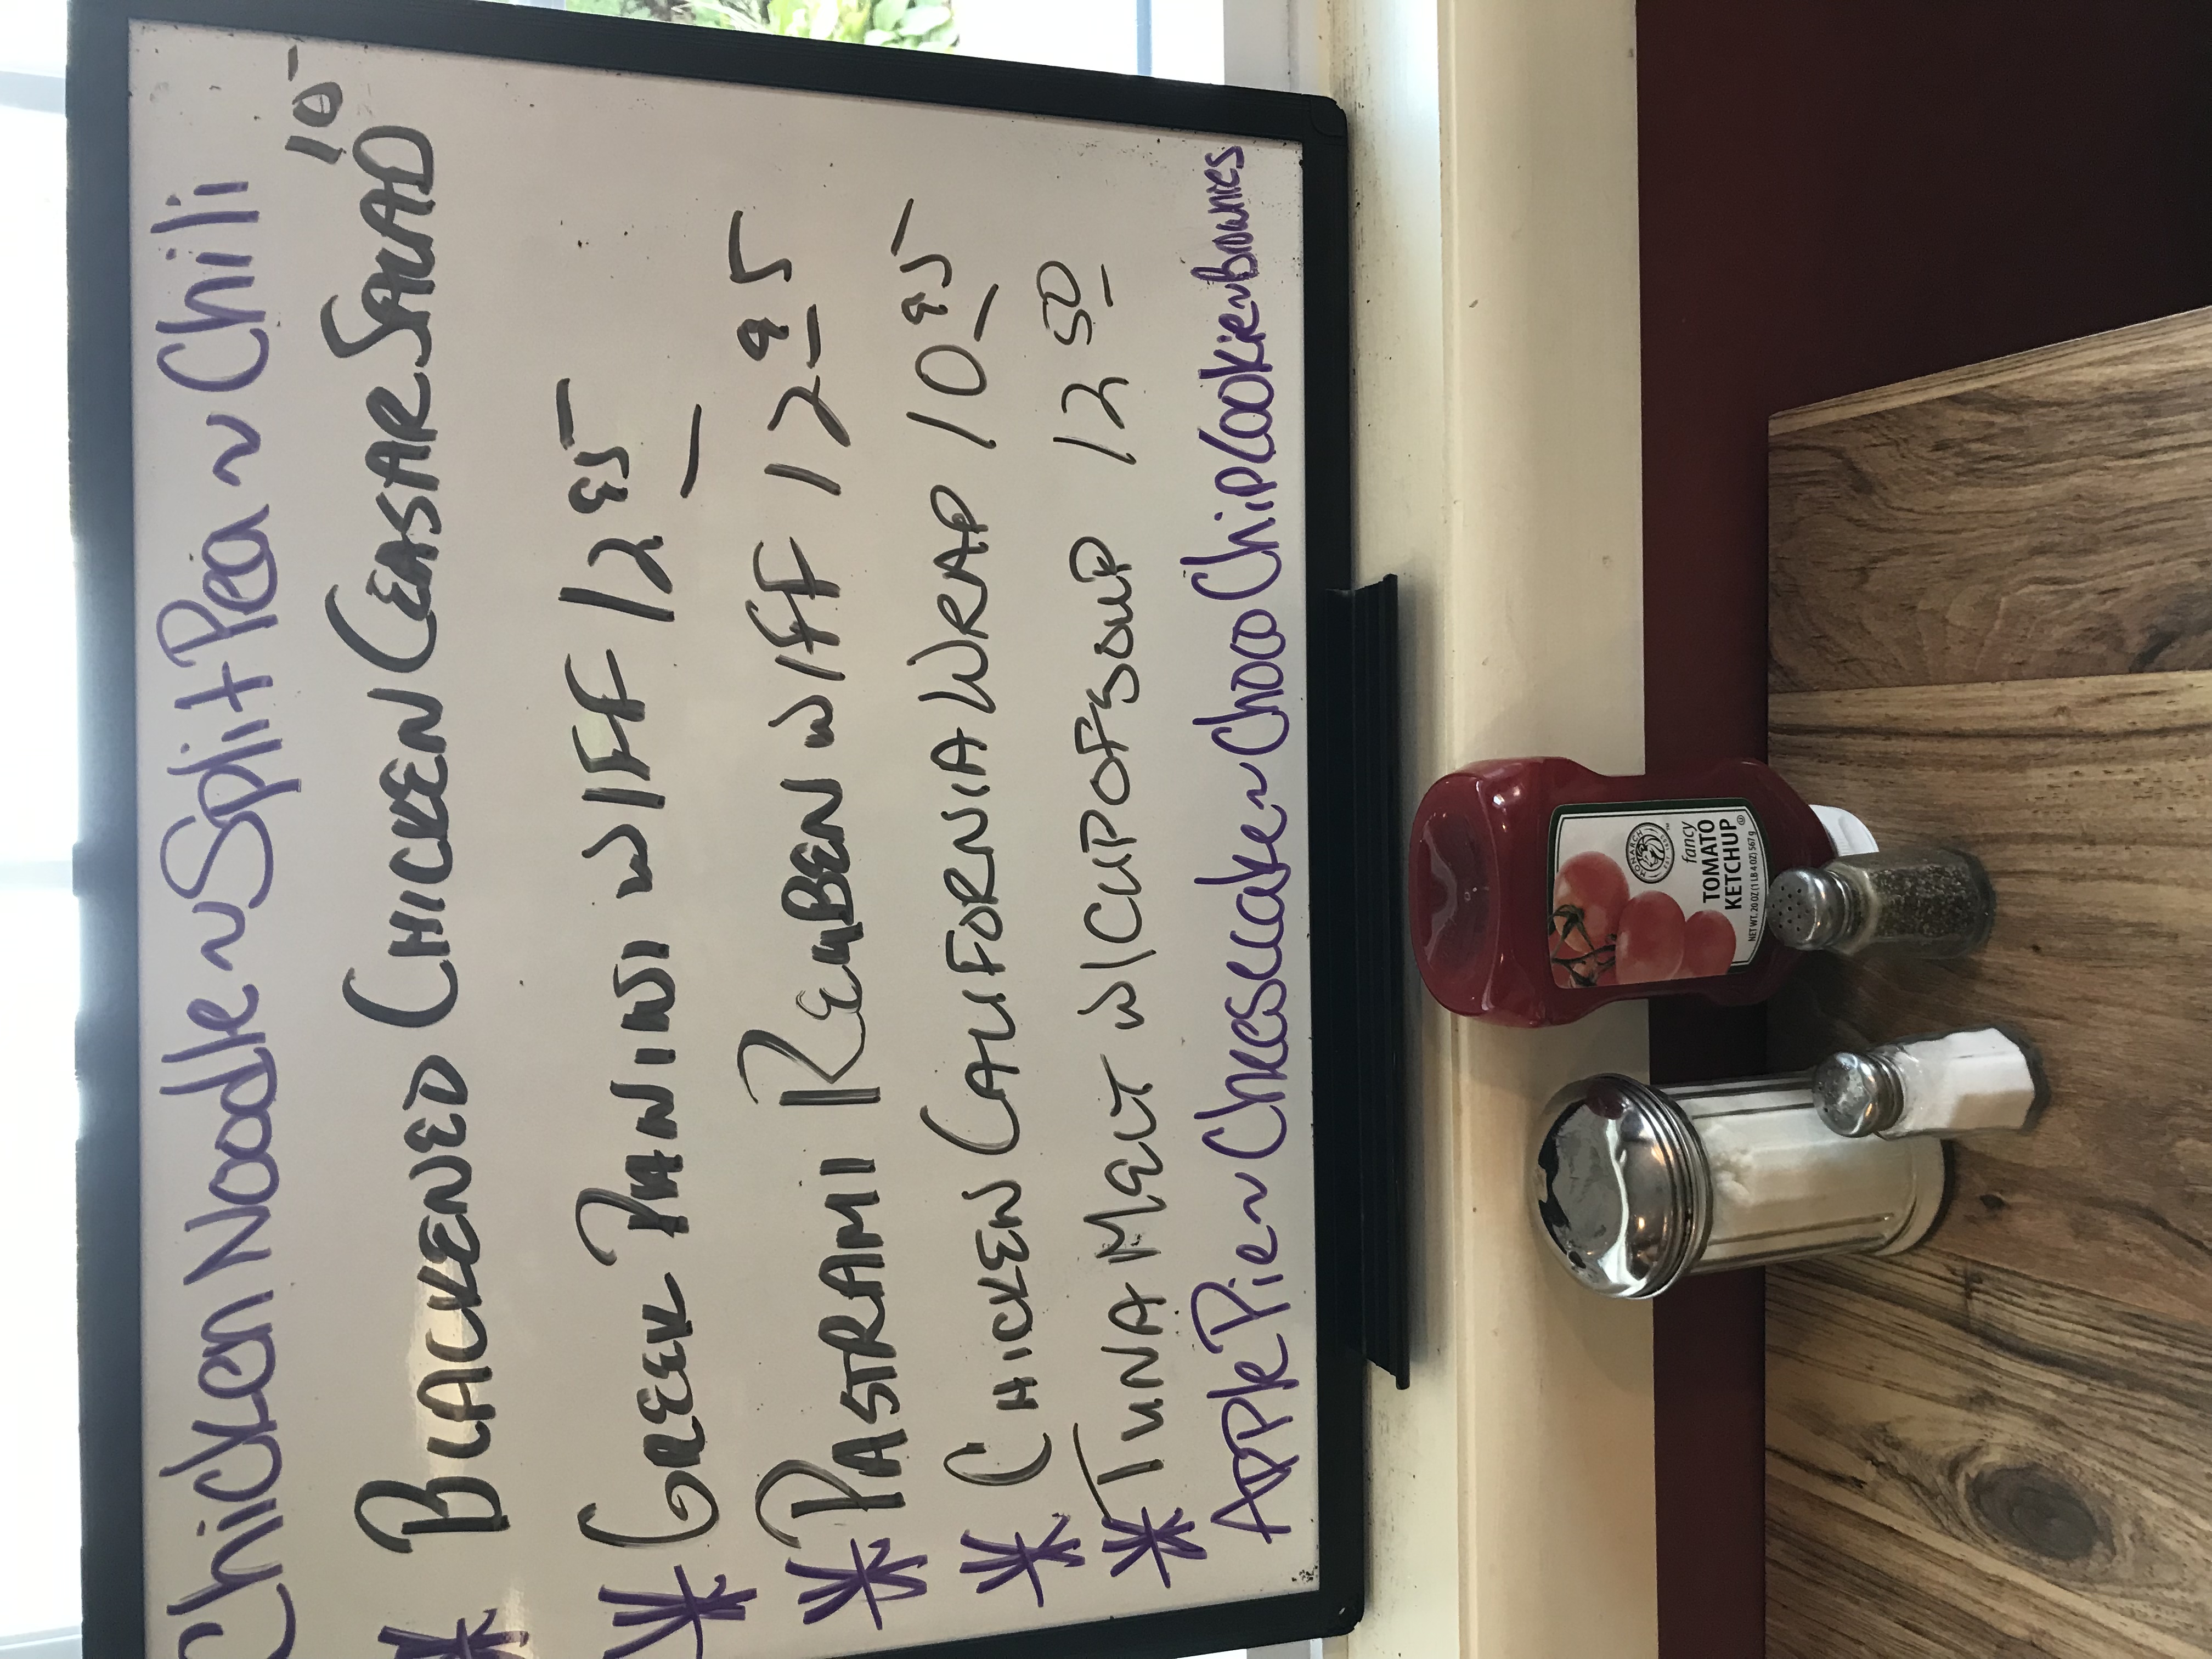 Chicken Noodle ~ Split Pea ~ Chili
* BLACKENED CHICKEN CEASAR SALAD 10-
* GREEK PANINI W/FF 12 95
* PASTRAMI REUBEN W/FF 12 95
* CHICKEN CALIFORNIA WRAP 10 95
* TUNA MELT W/CUP OF SOUP 12 50
Apple Pie ~ Cheesecake ~ Choco Chip Cookie ~ Brownies
MONARCH
fancy
TOMATO
KETCHUP
NET WT. 20 OZ (1 LB 4 OZ) 567 g